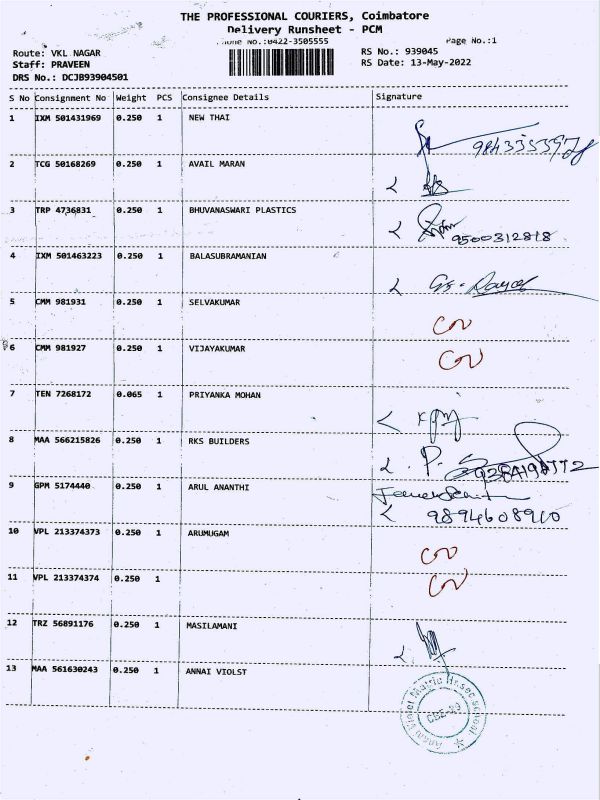 THE PROFESSIONAL COURIERS, Coimbatore
Delivery Runsheet - PCM
Phone No.:0422-3505555
Page No.:1
Route: VKL NAGAR
RS No.: 939045
Staff: PRAVEEN
RS Date: 13-May-2022
DRS No.: DCJB93904501
S No Consignment No Weight PCS Consignee Details Signature
1 IXM 501431969 0.250 1 NEW THAI
2 TCG 50168269 0.250 1 AVAIL MARAN
3 TRP 4736831 0.250 1 BHUVANASWARI PLASTICS
9500312818
4 IXM 501463223 0.250 1 BALASUBRAMANIAN
5 CMM 981931 0.250 1 SELVAKUMAR
6 CMM 981927 0.250 1 VIJAYAKUMAR
7 TEN 7268172 0.065 1 PRIYANKA MOHAN
8 MAA 566215826 0.250 1 RKS BUILDERS
9 GPM 5174440 0.250 1 ARUL ANANTHI
9894608910
10 VPL 213374373 0.250 1 ARUMUGAM
11 VPL 213374374 0.250 1
12 TRZ 56891176 0.250 1 MASILAMANI
13 MAA 561630243 0.250 1 ANNAI VIOLST